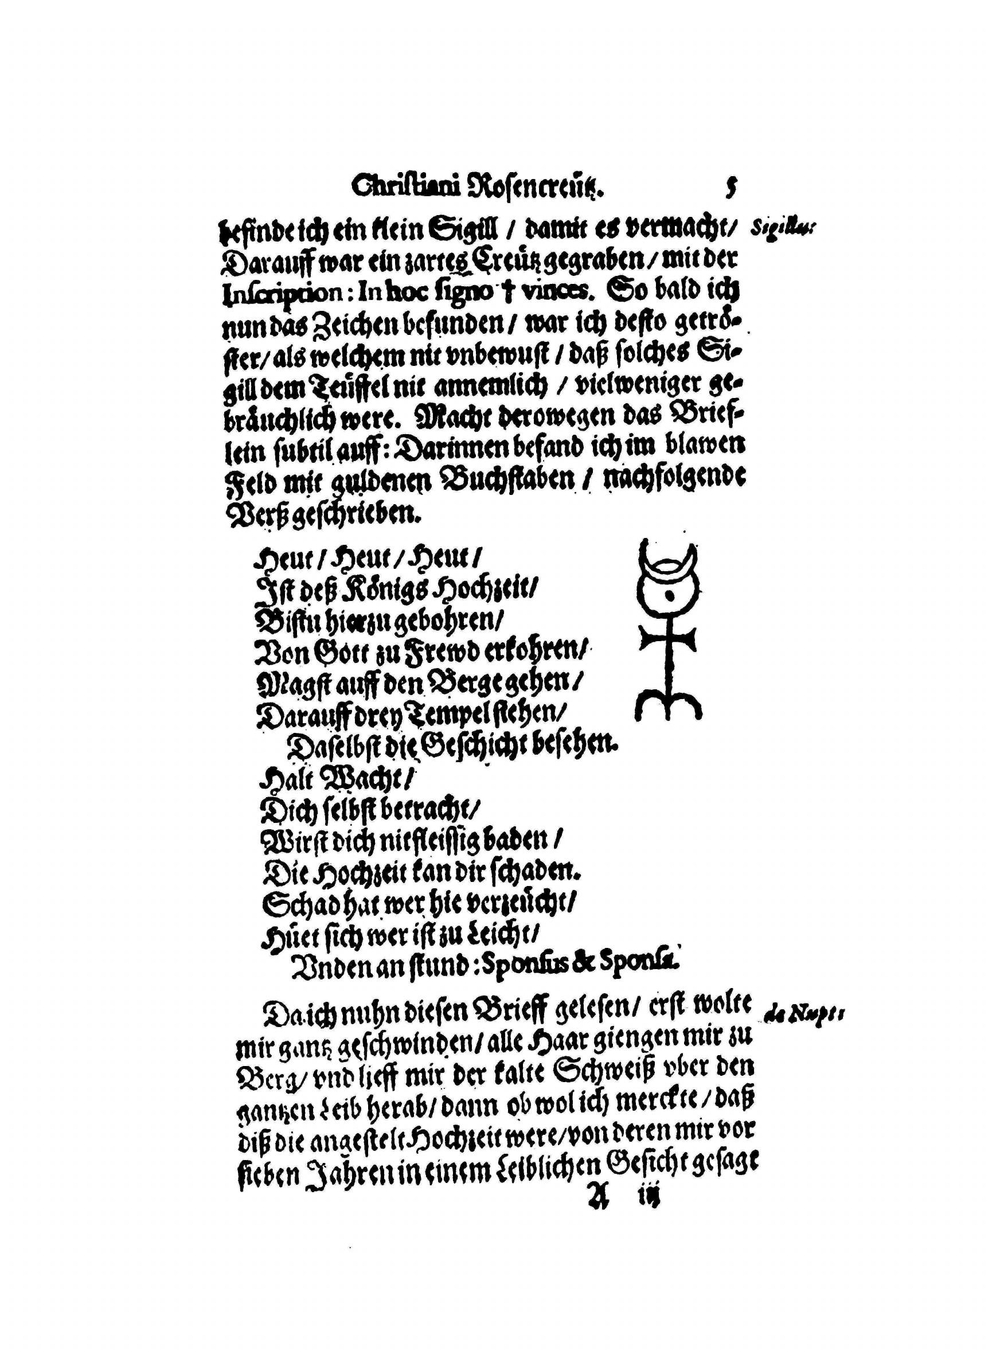 Christiani Rosencreütz. 5
befinde ich ein klein Sigill / damit es vermacht / Sigillũ:
Darauff war ein zartes Creütz gegraben / mit der
Inscription: In hoc signo † vinces. So bald ich
nun das Zeichen befunden / war ich desto getrö-
ster / als welchem nit vnbewust / daß solches Si-
gill dem Teüffel nit annemlich / vielweniger ge-
bräuchlich were. Macht derowegen das Brief-
lein subtil auff: Darinnen befand ich im blawen
Feld mit guldenen Buchstaben / nachfolgende
Verß geschrieben.
Heut / Heut / Heut /
Ist deß Königs Hochzeit /
Bistu hierzu gebohren /
Von Gott zu Frewd erkohren /
Magst auff den Berge gehen /
Darauff drey Tempel stehen /
Daselbst die Geschicht besehen.
Halt Wacht /
Dich selbst betracht /
Wirst dich nit fleissig baden /
Die Hochzeit kan dir schaden.
Schad hat wer hie verzeücht /
Hüet sich wer ist zu Leicht /
Vnden an stund: Sponsus & Sponsa.
Da ich nuhn diesen Brieff gelesen / erst wolte de Nupt:
mir gantz geschwinden / alle Haar giengen mir zu
Berg / vnd lieff mir der kalte Schweiß vber den
gantzen Leib herab / dann ob wol ich merckte / daß
diß die angestelt Hochzeit were / von deren mir vor
sieben Jahren in einem Leiblichen Gesicht gesagt
A iij